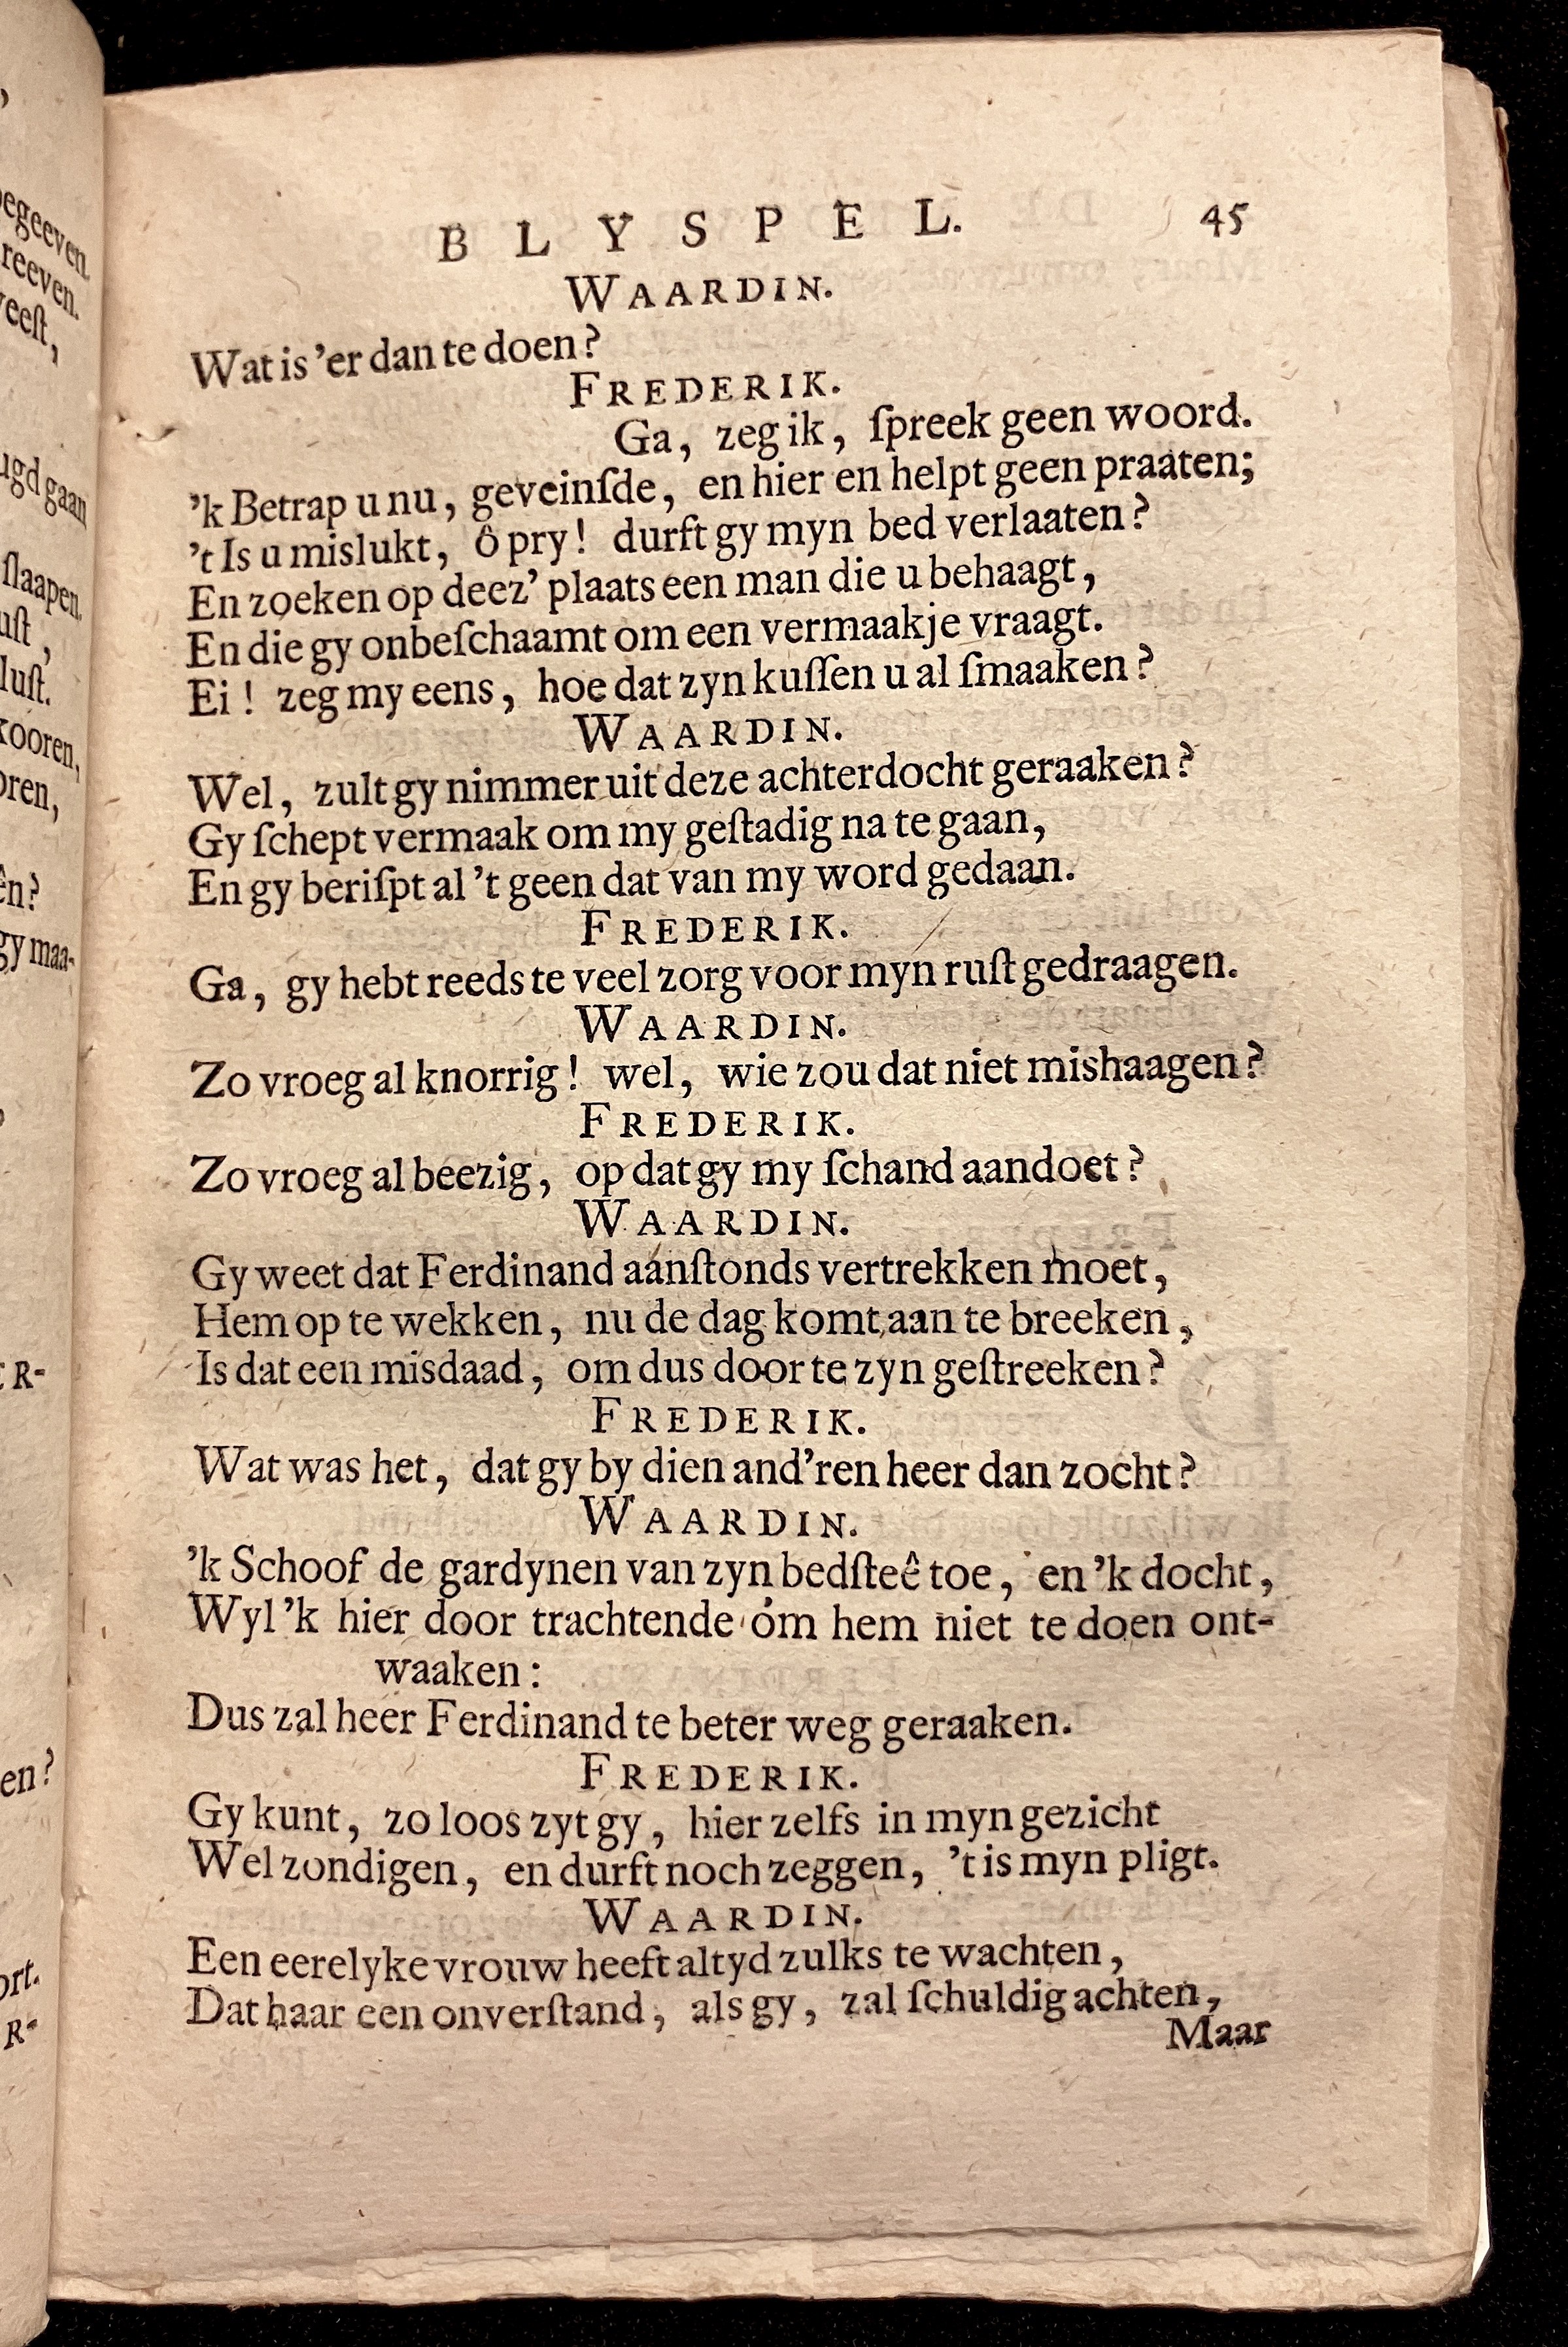 BLYSPEL. 45
WAARDIN.
Wat is 'er dan te doen?
FREDERIK.
Ga, zeg ik, ſpreek geen woord.
'k Betrap u nu, geveinſde, en hier en helpt geen praaten;
't Is u mislukt, ô pry! durft gy myn bed verlaaten?
En zoeken op deez' plaats een man die u behaagt,
En die gy onbeſchaamt om een vermaakje vraagt.
Ei! zeg my eens, hoe dat zyn kuſſen u al ſmaaken?
WAARDIN.
Wel, zult gy nimmer uit deze achterdocht geraaken?
Gy ſchept vermaak om my geſtadig na te gaan,
En gy beriſpt al 't geen dat van my word gedaan.
FREDERIK.
Ga, gy hebt reeds te veel zorg voor myn ruſt gedraagen.
WAARDIN.
Zo vroeg al knorrig! wel, wie zou dat niet mishaagen?
FREDERIK.
Zo vroeg al beezig, op dat gy my ſchand aandoet?
WAARDIN.
Gy weet dat Ferdinand aanſtonds vertrekken moet,
Hem op te wekken, nu de dag komt aan te breeken,
Is dat een misdaad, om dus door te zyn geſtreeken?
FREDERIK.
Wat was het, dat gy by dien and'ren heer dan zocht?
WAARDIN.
'k Schoof de gardynen van zyn bedſteê toe, en 'k docht,
Wyl 'k hier door trachtende óm hem niet te doen ont-
waaken:
Dus zal heer Ferdinand te beter weg geraaken.
FREDERIK.
Gy kunt, zo loos zyt gy, hier zelfs in myn gezicht
Wel zondigen, en durft noch zeggen, 't is myn pligt.
WAARDIN.
Een eerelyke vrouw heeft altyd zulks te wachten,
Dat haar een onverſtand, als gy, zal ſchuldig achten,
Maar